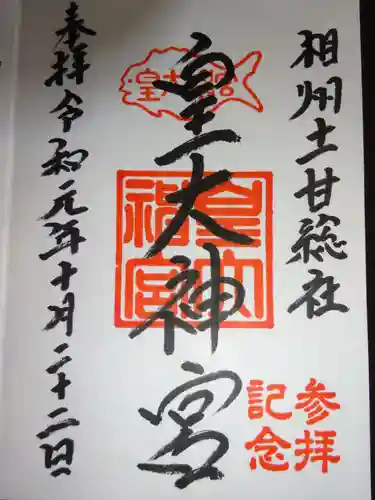 相州土甘総社
参拝
記念
皇大神宮
皇大
神宮
奉拝令和元年十月二十二日